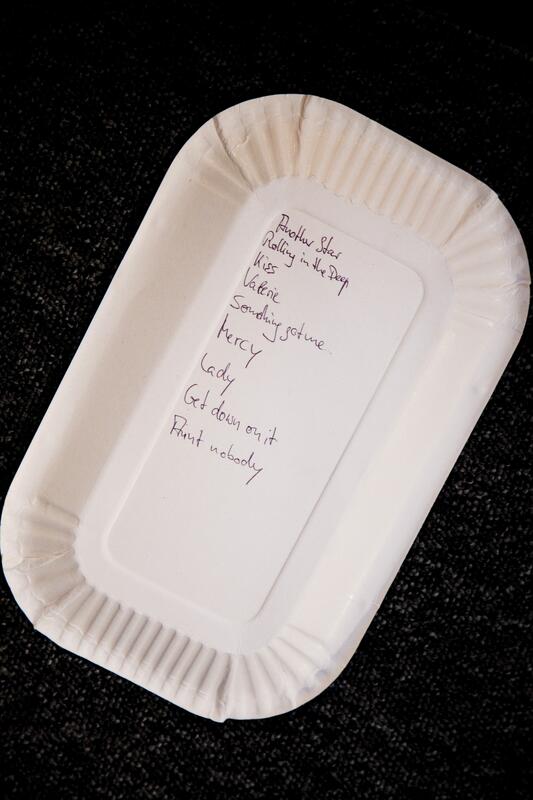 Another Star
Rolling in the Deep
Kiss
Valerie
Something got me.
Mercy
Lady
Get down on it
Aint nobody